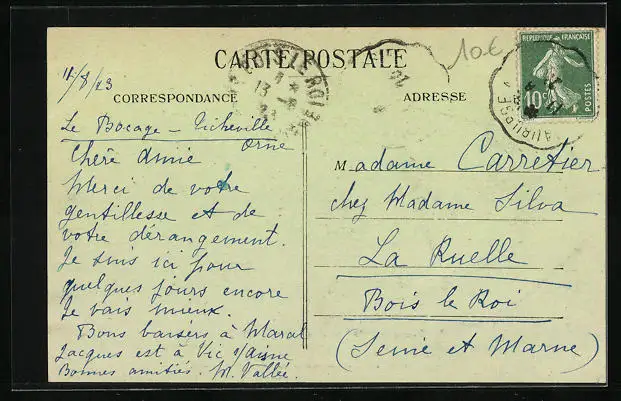 CARTE POSTALE
10€
REPUBLIQUE FRANÇAISE
10c
POSTES
11/8/23
CORRESPONDANCE
ADRESSE
Le Bocage - Ticheville
Orne
Chère Amie
Merci de votre
gentillesse et de
votre dérangement.
Je suis ici pour
quelques jours encore
Je vais mieux.
Bons baisers à Maral
Jacques est à Vic s/Aisne
Bonnes amitiés. M. Vallée.
Madame Carretier
chez Madame Silva
La Ruelle
Bois le Roi
(Seine et Marne)